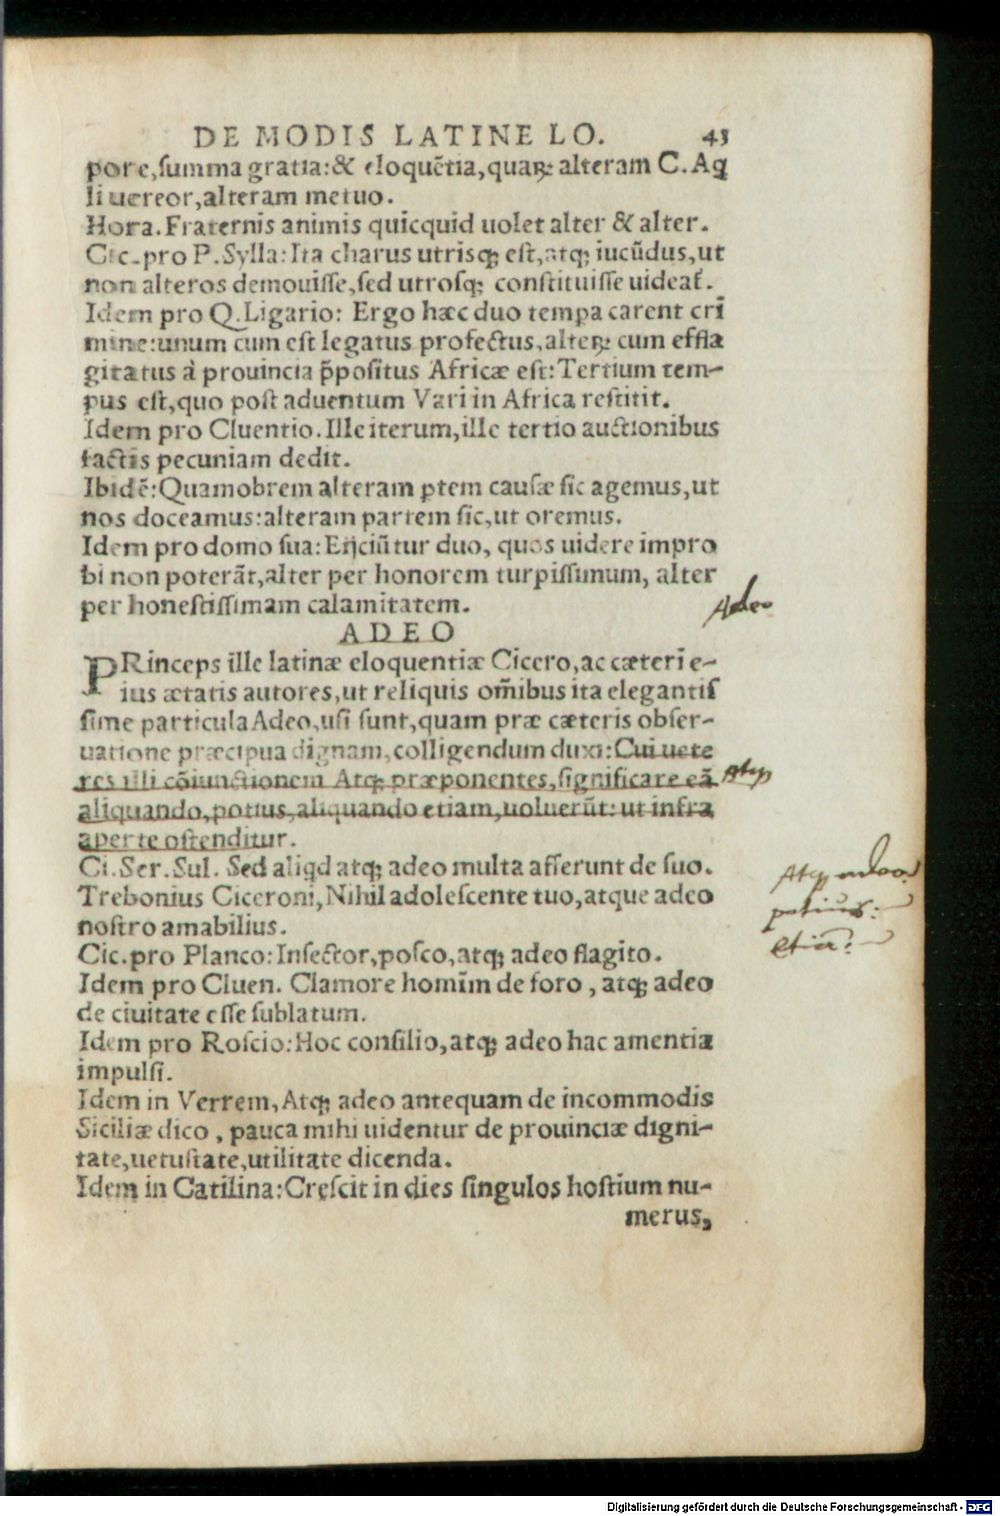 DE MODIS LATINE LO. 43
pore,ſumma gratia:& eloquẽtia,quaꝝ alteram C.Aq̃
li uereor,alteram metuo.
Hora.Fraternis animis quicquid uolet alter & alter.
Cic.pro P.Sylla:Ita charus utrisq; eſt,atq; iucũdus,ut
non alteros demouiſſe,ſed utroſq; conſtituiſſe uideat̃.
Idem pro Q.Ligario: Ergo hæc duo tempa carent cri
mine:unum cum eſt legatus profectus,alteꝝ cum effla
gitatus à prouincia p̃poſitus Africæ eſt:Tertium tem-
pus eſt,quo poſt aduentum Vari in Africa reſtitit.
Idem pro Cluentio.Ille iterum,ille tertio auctionibus
factis pecuniam dedit.
Ibidẽ:Quamobrem alteram ꝑtem cauſæ ſic agemus,ut
nos doceamus:alteram partem ſic,ut oremus.
Idem pro domo ſua:Eijciũtur duo, quos uidere impro
bi non poterãt,alter per honorem turpiſſimum, alter
per honeſtiſſimam calamitatem.
Adeo
ADEO
PRinceps ille latinæ eloquentiæ Cicero,ac cæteri e-
ius ætatis autores,ut reliquis om̃ibus ita elegantiſ
ſime particula Adeo,uſi ſunt,quam præ cæteris obſer-
uatione præcipua dignam,colligendum duxi:Cui uete
res illi cõiunctionem Atq; præponentes,ſignificare eã Atq;
aliquando,potius,aliquando etiam,uoluerũt: ut infra
aperte oſtenditur.
Ci.Ser.Sul. Sed aliqd atq; adeo multa afferunt de ſuo.
Atq; adeo.
Trebonius Ciceroni,Nihil adoleſcente tuo,atque adeo
potius.
noſtro amabilius.
etiã.
Cic.pro Planco:Inſector,poſco,atq; adeo flagito.
Idem pro Cluen. Clamore homĩm de foro , atq; adeo
de ciuitate eſſe ſublatum.
Idem pro Roſcio:Hoc conſilio,atq; adeo hac amentia
impulſi.
Idem in Verrem,Atq; adeo antequam de incommodis
Siciliæ dico , pauca mihi uidentur de prouinciæ digni-
tate,uetuſtate,utilitate dicenda.
Idem in Catilina:Creſcit in dies ſingulos hoſtium nu-
merus,
Digitalisierung gefördert durch die Deutsche Forschungsgemeinschaft - DFG